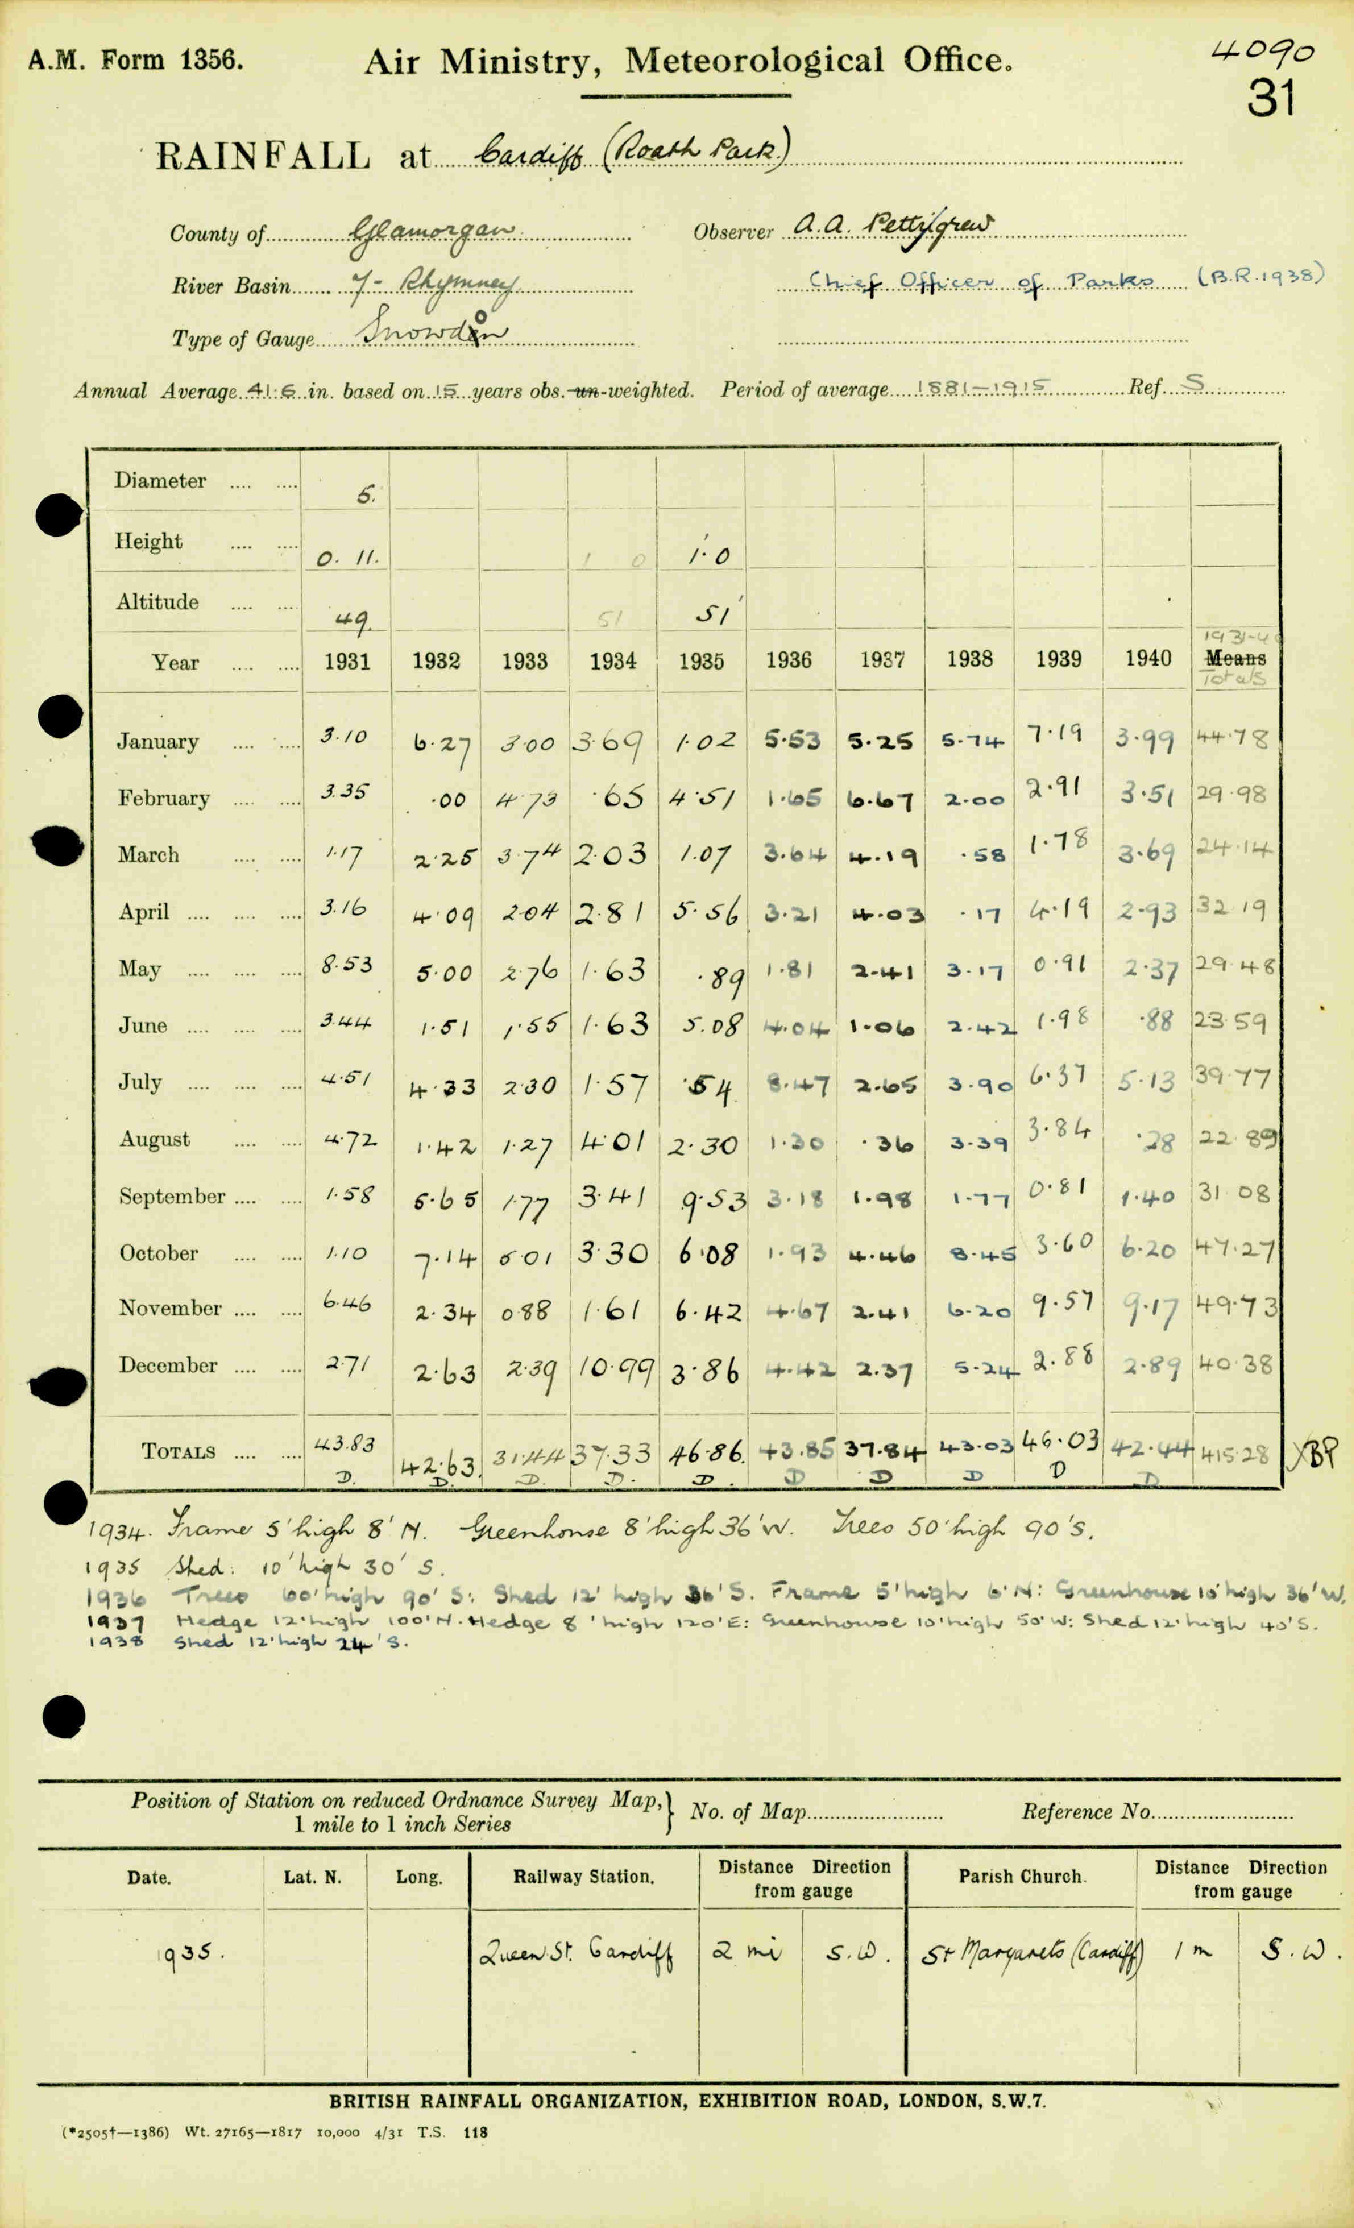 A.M. Form 1356.
Air Ministry, Meteorological Office.
4090
31
RAINFALL at Cardiff (Roath Park)
County of Glamorgan Observer A.A. Pettigrew
River Basin 7 - Rhymney Chief Officer of Parks (B.R. 1938)
Type of Gauge Snowdon
Annual Average 41.6 in. based on 15 years obs. un-weighted. Period of average 1881-1915 Ref. S
Diameter 5.
Height 0. 11. 1 0 1.0
Altitude 49. 51 51'
1931-40
Year 1931 1932 1933 1934 1935 1936 1937 1938 1939 1940 Means
Totals
January 3.10 6.27 3.00 3.69 1.02 5.53 5.25 5.74 7.19 3.99 44.78
February 3.35 .00 4.73 .65 4.51 1.65 6.67 2.00 2.91 3.51 29.98
March 1.17 2.25 3.74 2.03 1.07 3.64 4.19 .58 1.78 3.69 24.14
April 3.16 4.09 2.04 2.81 5.56 3.21 4.03 .17 4.19 2.93 32.19
May 8.53 5.00 2.76 1.63 .89 1.81 2.41 3.17 0.91 2.37 29.48
June 3.44 1.51 1.55 1.63 5.08 4.04 1.06 2.42 1.98 .88 23.59
July 4.51 4.33 2.30 1.57 .54 8.47 2.65 3.90 6.37 5.13 39.77
August 4.72 1.42 1.27 4.01 2.30 1.30 .36 3.39 3.84 .28 22.89
September 1.58 5.65 1.77 3.41 9.53 3.18 1.98 1.77 0.81 1.40 31.08
October 1.10 7.14 5.01 3.30 6.08 1.93 4.46 8.45 3.60 6.20 47.27
November 6.46 2.34 0.88 1.61 6.42 4.67 2.41 6.20 9.57 9.17 49.73
December 2.71 2.63 2.39 10.99 3.86 4.42 2.37 5.24 2.88 2.89 40.38
TOTALS 43.83 42.63. 31.44 37.33 46.86. 43.85 37.84 43.03 46.03 42.44 415.28 XBP
D. D. D. D. D. D D D D D
1934. Frame 5' high 8' N. Greenhouse 8' high 36' W. Trees 50' high 90' S.
1935 Shed: 10' high 30' S.
1936 Trees 60' high 90' S: Shed 12' high 36' S. Frame 5' high 6' N: Greenhouse 10' high 36' W.
1937 Hedge 12' high 100' N. Hedge 8' high 120' E: Greenhouse 10' high 50' W: Shed 12' high 40' S.
1938 Shed 12' high 24' S.
Position of Station on reduced Ordnance Survey Map, } No. of Map Reference No.
1 mile to 1 inch Series
Date. Lat. N. Long. Railway Station. Distance Direction from gauge Parish Church. Distance Direction from gauge
1935. Queen St. Cardiff 2 mi S.W. St Margarets (Cardiff) 1 m S.W.
BRITISH RAINFALL ORGANIZATION, EXHIBITION ROAD, LONDON, S.W.7.
(*2505†—1386) Wt. 27165—1817 10,000 4/31 T.S. 118